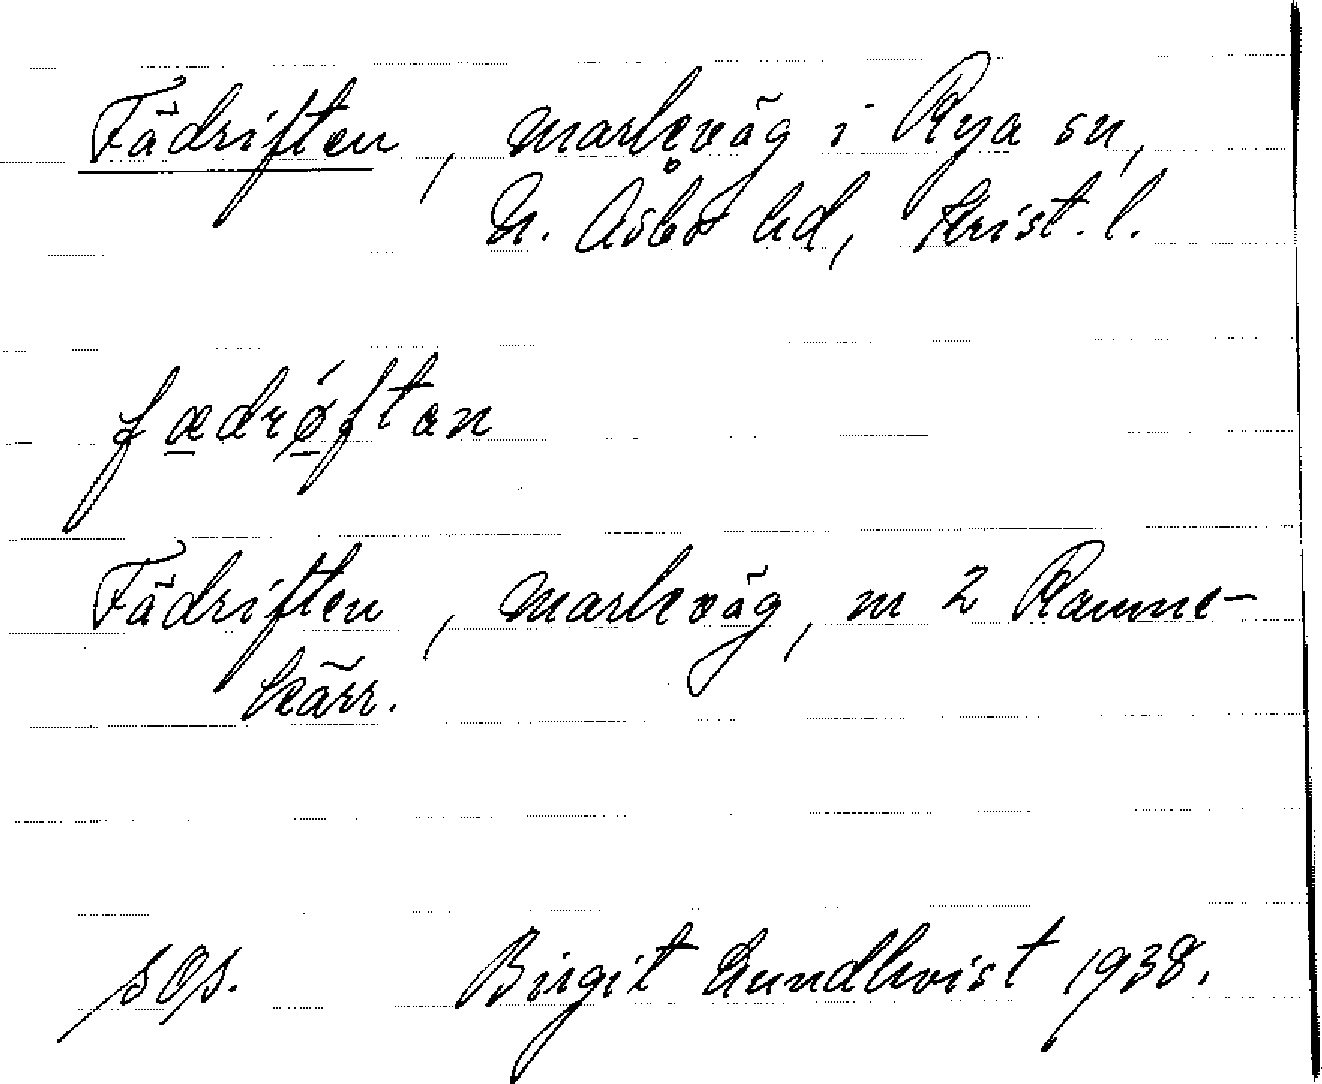 Fädriften, markväg i Rya sn,
N. Åsbo hd, Krist. l.
fædrǿftan
Fädriften, markväg, m 2 Ramne-
kärr.
sOs. Birgit Lundkvist 1938.